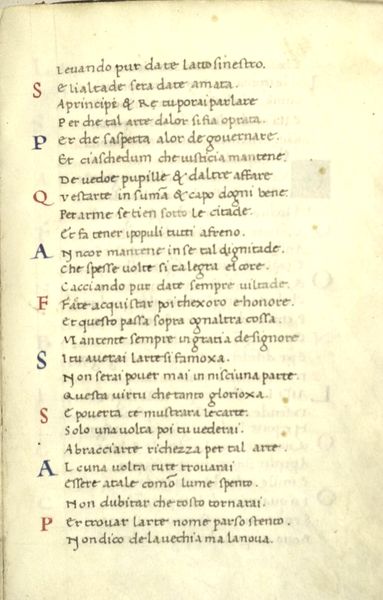 Levando pur da te latto sinestro.
S E lialtade sera date amata.
A principi & Re tu porai parlare
Per che tal arte da lor si fia oprata.
P Er che saspetta alor de governare.
Et ciaschedum che iusticia mantene.
De vedoe pupille & daltre affare
Q Vestarte in suma & capo dogni bene.
Per arme se tien sotto le citade.
Et fa tener ipopuli tutti afreno.
A Ncor mantene in se tal dignitade.
Che spesse volte si talegra el core.
Cacciando pur date sempre viltade.
F Fate acquistar poi thexoro e honore.
Et questo passa sopra ognaltra cossa.
Mantente sempre in gratia de signore
S I tu averai larte si famoxa.
Non serai pover mai in nisciuna parte.
Questa virtu che tanto glorioxa.
S E poverta te mustrara le carte.
Solo una volta poi tu vederai.
Abracciarte richezza per tal arte.
A Lcuna volta tu te trovarai
Essere a tale como lume spento.
Non dubitar che tosto tornarai.
P Er trovar larte nome parso stento.
Non dico de la vechia ma la nova.